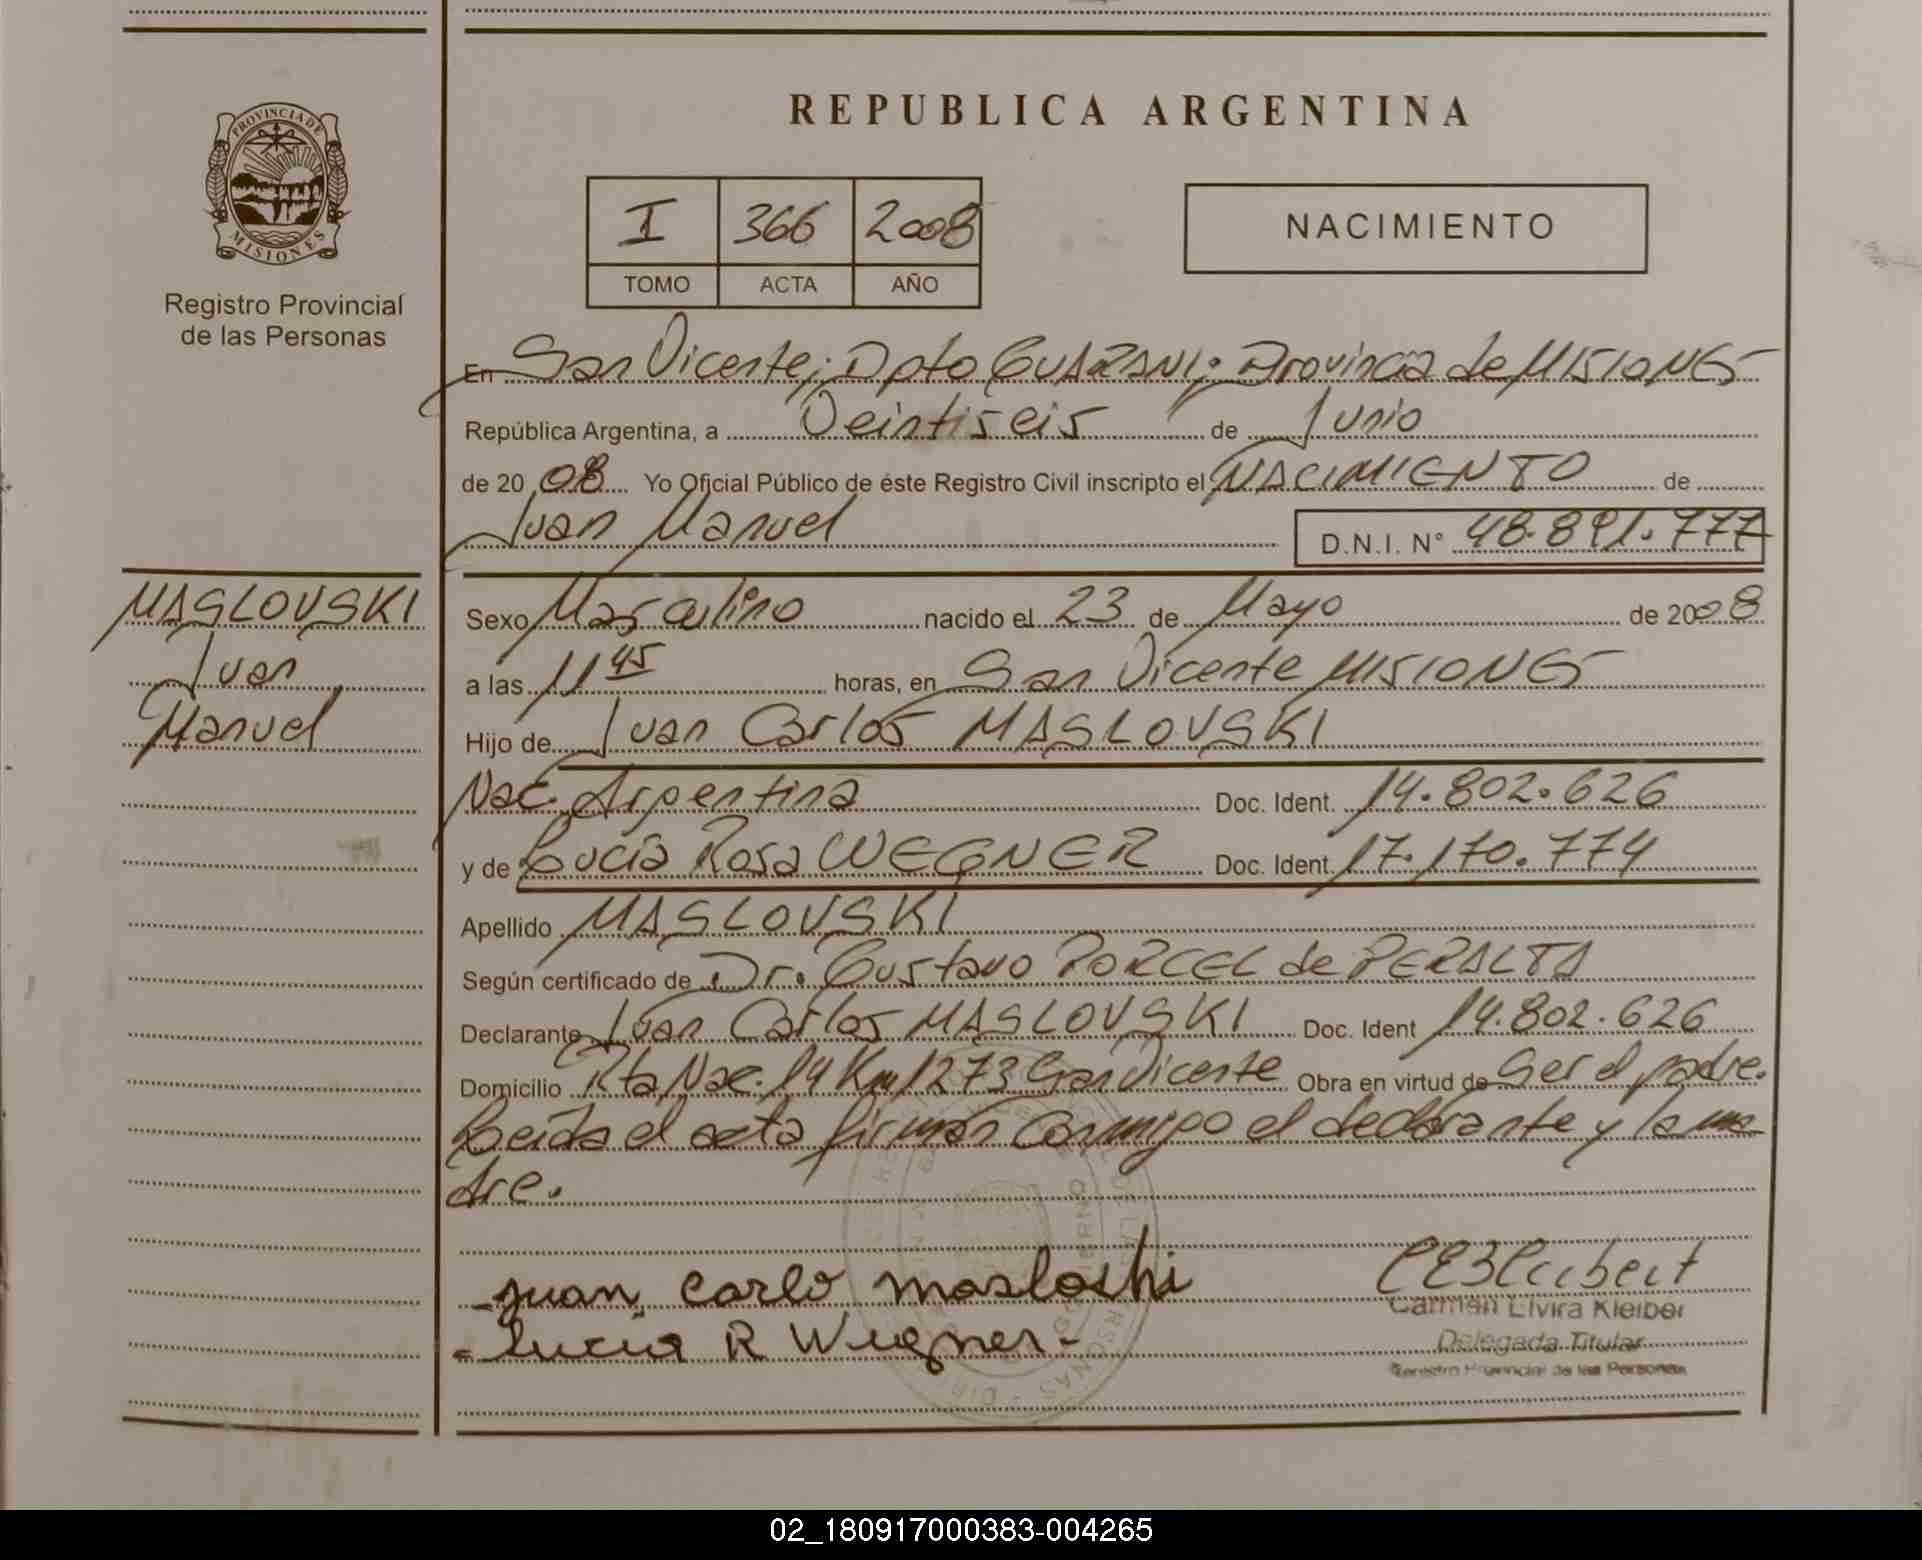 REPUBLICA ARGENTINA
PROVINCIA DE MISIONES
Registro Provincial
de las Personas
I 366 2008
TOMO ACTA AÑO
NACIMIENTO
En San Vicente; Dpto GUARANI; Provincia de MISIONES
República Argentina, a Veintiseis de Junio
de 20 08 Yo Oficial Público de éste Registro Civil inscripto el NACIMIENTO de
Juan Manuel D.N.I. N° 48.891.777
MASLOVSKI
Juan
Manuel
Sexo Masculino nacido el 23 de Mayo de 2008
a las 11 45 horas, en San Vicente MISIONES
Hijo de Juan Carlos MASLOVSKI
Nac. Argentina Doc. Ident. 14.802.626
y de Lucía Rosa WEGNER Doc. Ident. 17.170.774
Apellido MASLOVSKI
Según certificado de Dr. Gustavo PORCEL de PERALTA
Declarante Juan Carlos MASLOVSKI Doc. Ident 14.802.626
Domicilio Rta Nac. 14 Km 1273 San Vicente Obra en virtud de Ser el padre.
Leída el acta firman conmigo el declarante y la ma
dre.
juan carlo masloshi
lucia R Wegner-
Carmen Elvira Kleiber
Delegada Titular
Registro Provincial de las Personas
02_180917000383-004265